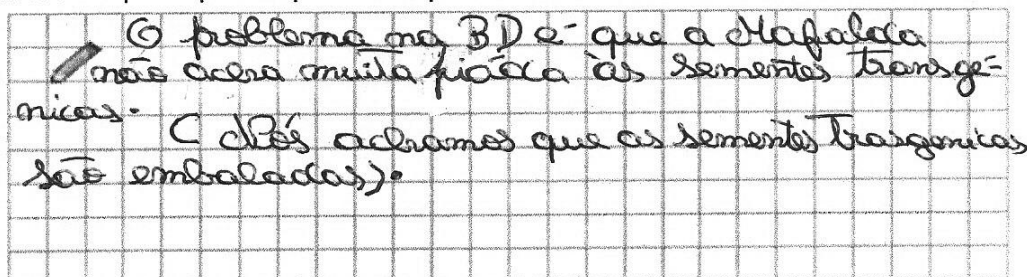 O problema na BD é que a Mafalda
não acha muita piada às sementes transgé-
nicas.
( Nós achamos que as sementes trasgenicas
são embaladas).